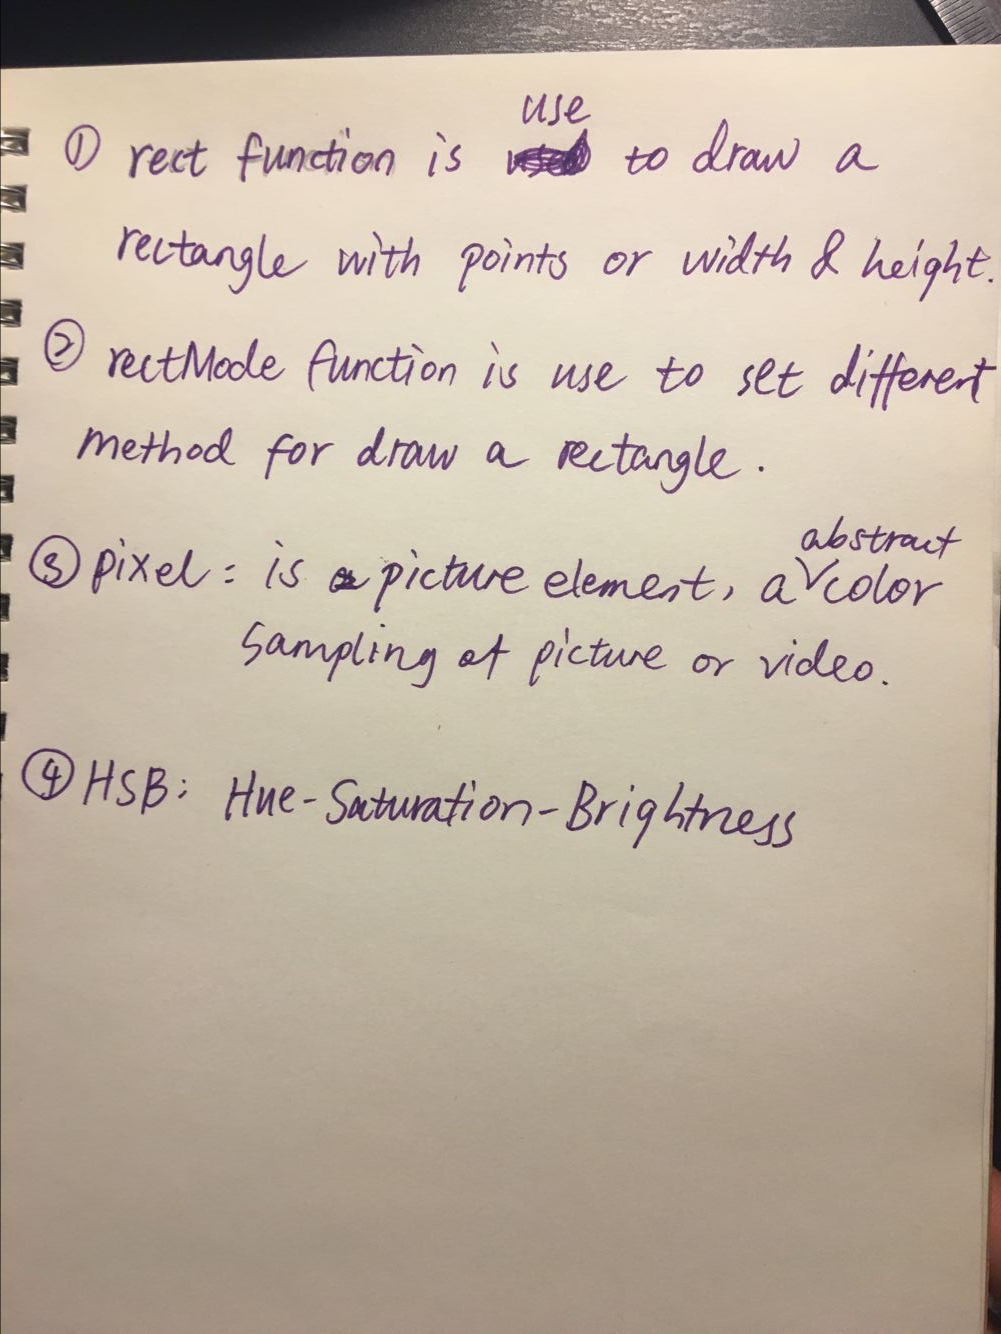 ① rect function is use to draw a
rectangle with points or width & height.
② rectMode function is use to set different
method for draw a rectangle.
③ pixel: is a picture element, a abstract color
sampling of picture or video.
④ HSB: Hue-Saturation-Brightness